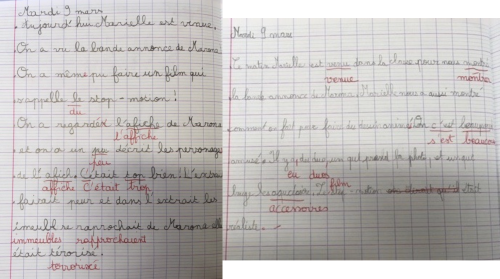 Mardi 9 mars
Aujourd'hui Marielle est venue.
On a vu la bande annonce de Marona
On a même pu faire un film qui
rappelle le stop-motion!
du
On a regardéx l'afiche de Marona
l'affiche
et on a un peu décrit les personages
peu
de l'afich. C'était trop bien! L'extrai
affiche C'était trop
faisait peur et dans l'extrait les
imeuble se raprochait de Marona elle
immeubles rapprochaient
était térorisé.
terrorisée
Mardi 9 mars
Ce matin Marielle est venu dans la classe pour nous montré
venue montrer
la bande annonce de Marona. Marielle nous a aussi montré
comment on fait pour faire du dessin animé. On c'est beaucoup
s'est beaucoup
amusé. Il y a eu des un qui prend la photo, et un qui
eu deux
bouge les
film
accessoires
réaliste.